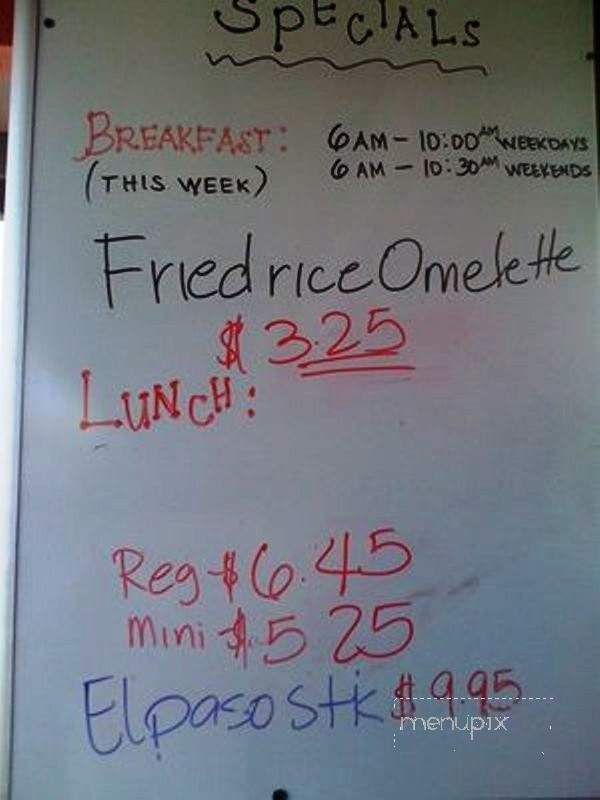 SpECIALs
BREAKFAST: 6 AM - 10:00 AM WEEKDAYS
(THIS WEEK) 6 AM - 10:30 AM WEEKENDS
Fried rice Omelette
$ 3.25
LUNCH:
Reg $6.45
mini $5.25
Elpaso Stk $9.95
menupix